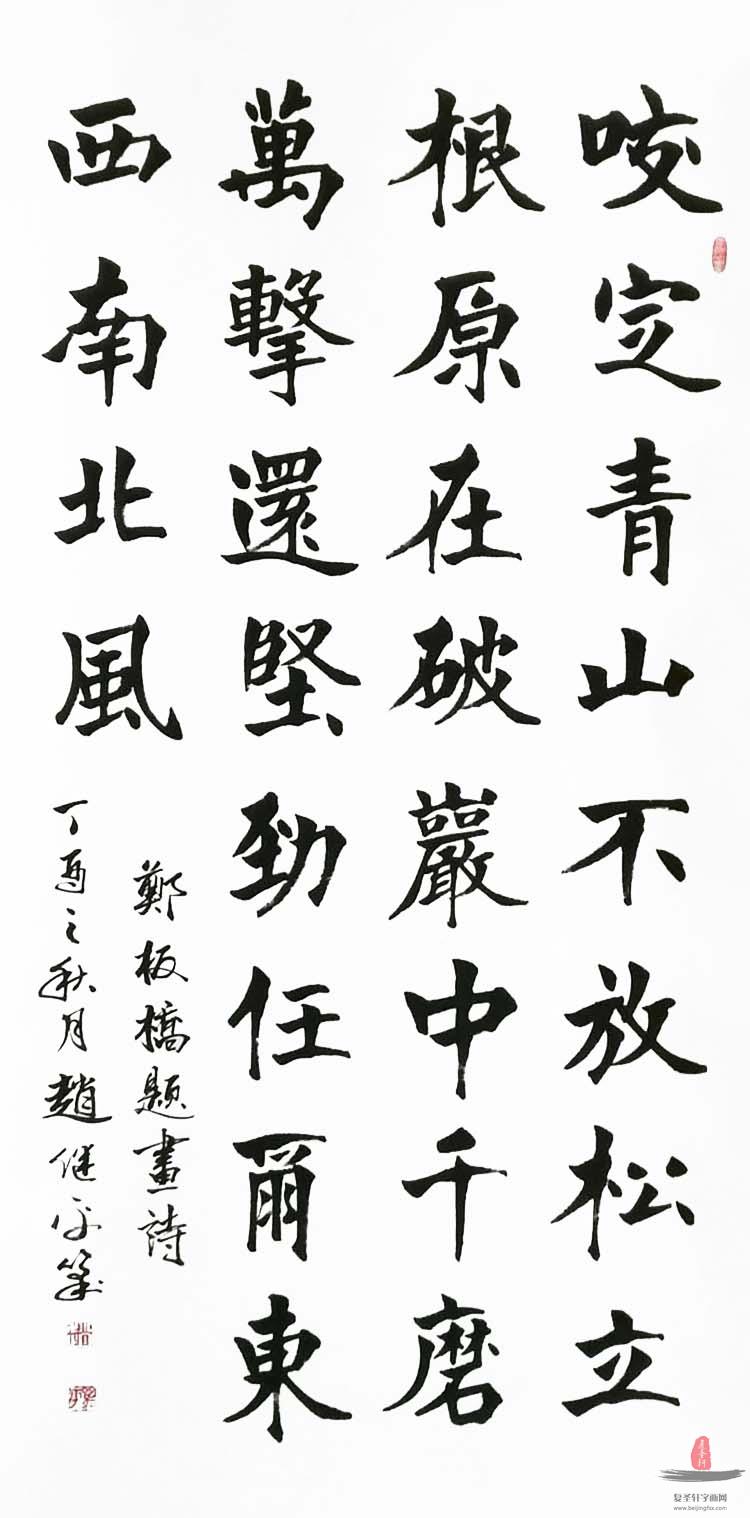 咬定青山不放松立
根原在破巖中千磨
萬擊還堅勁任爾東
西南北風
鄭板橋題畫詩
丁酉之秋月趙继平筆
复圣轩字画网
www.beijingfsx.com